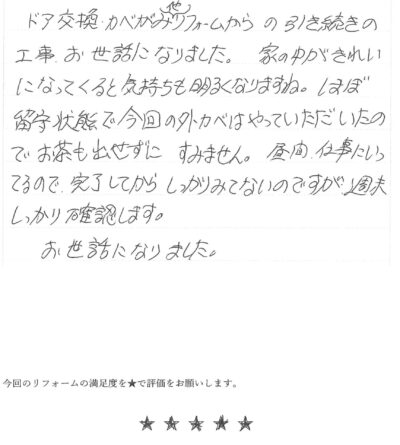 ドア交換・カベがみ他リフォームからの引き続きの
工事、お世話になりました。 家の中がきれい
になってくると気持ちも明るくなりますね。ほぼ
留守状態で今回の外カベはやっていただいたの
でお茶も出せずに すみません。 昼間、仕事にいっ
てるので、完了してから しっかりみてないのですが、週末
しっかり確認します。
お世話になりました。
今回のリフォームの満足度を★で評価をお願いします。
★ ★ ★ ★ ★